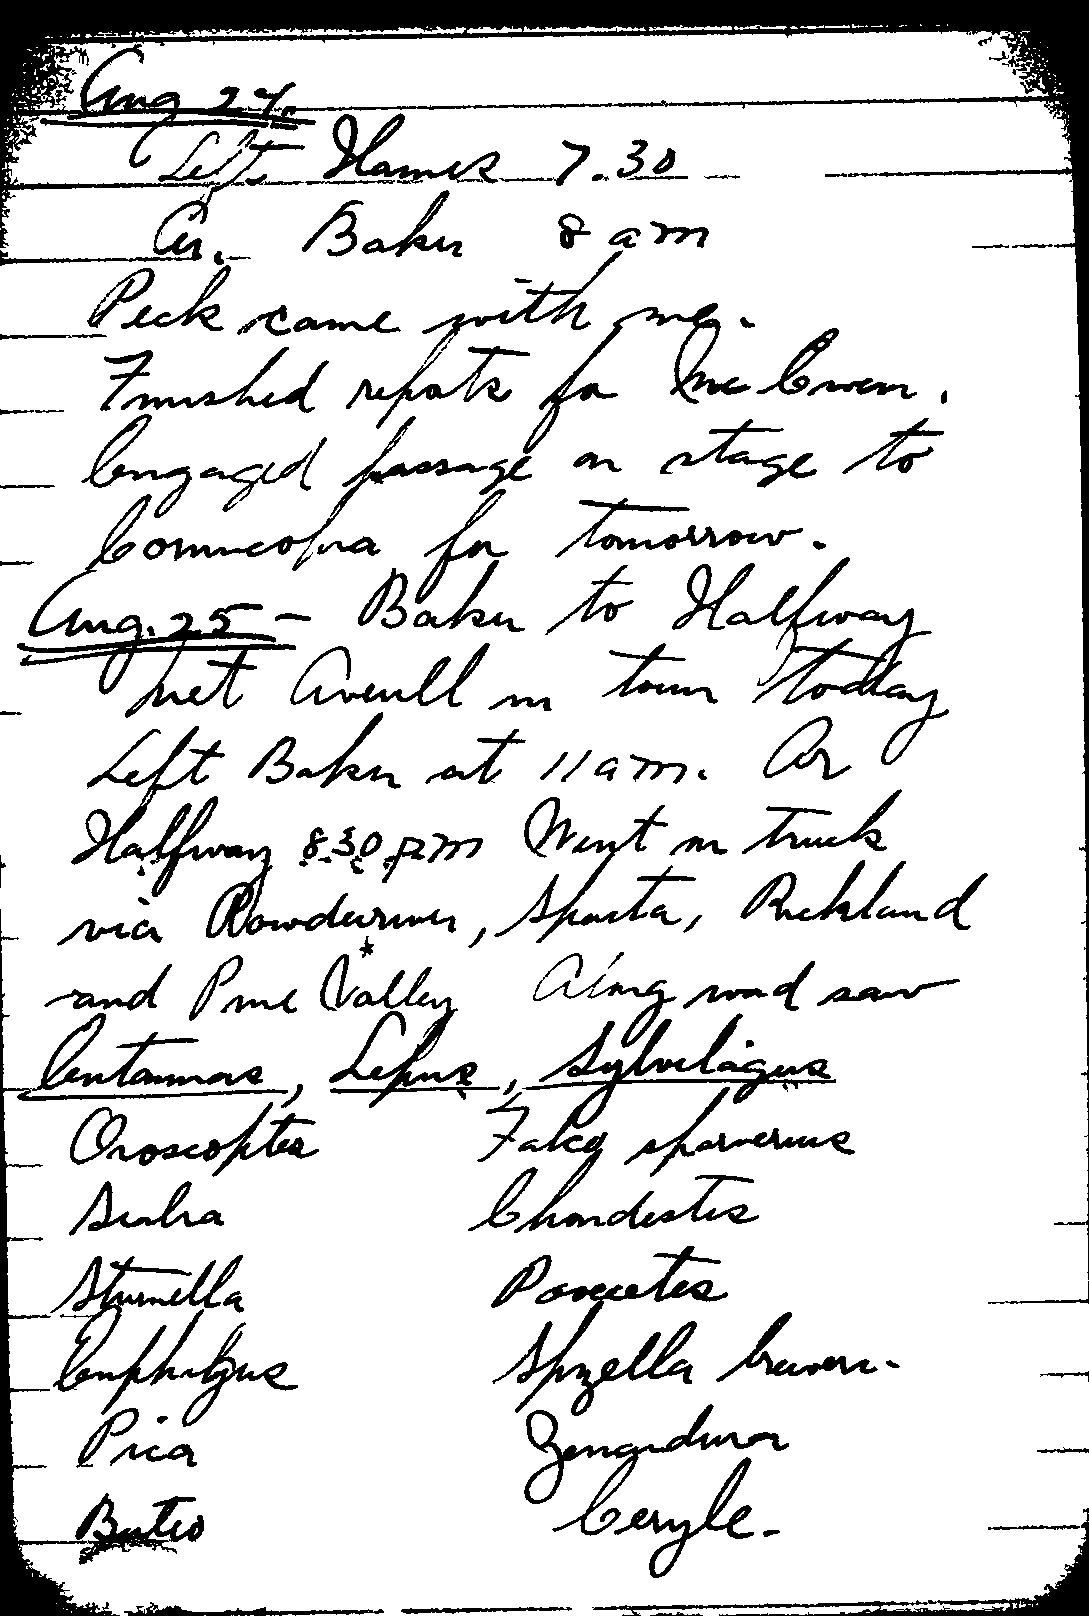 Aug 24.
Left Haines 7.30
Ar. Baker 8 am
Peck came with me.
Finished reports for McEwen.
Engaged passage on stage to
Cornucopia for tomorrow.
Aug. 25 - Baker to Halfway
Met Averill in town today
Left Baker at 11 am. Ar
Halfway 8.30 pm Went in truck
via Powder river, Sparta, Richland
and Pine Valley Along road saw
Antennas, Lepus, Sylvilagus
Oroscoptes Falco sparverius
Sialia Chondestes
Sturnella Pooecetes
Euphagus Spizella breweri.
Pica Zenaidura
Buteo Ceryle.